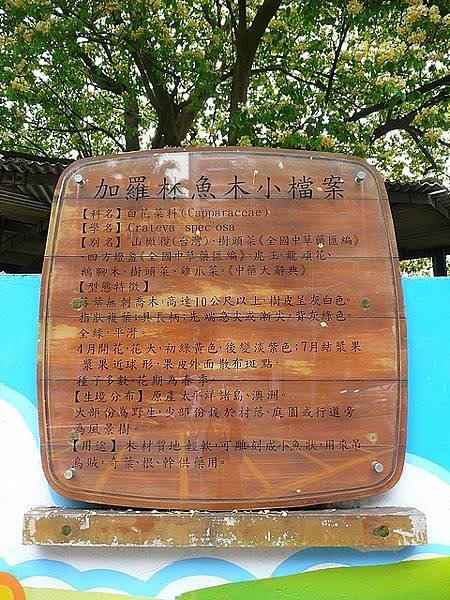 加羅林魚木小檔案
【科名】白花菜科(Capparaceae)
【學名】Crateva speciosa
【別名】山橄欖(台湾)、樹頭菜《全國中草藥匯編》
、四方燈盞《全國中草藥匯編》、虎王、龍頭花、
鵝腳木、樹頭菜、雞爪菜。《中藥大辭典》
【型態特徵】
落葉無刺喬木，高達10公尺以上，樹皮呈灰白色。
指狀複葉；具長柄；先端急尖或漸尖，背灰綠色。
全緣，平滑。
4月開花，花大，初綠黃色，後變淡紫色；7月結漿果
漿果近球形，果皮外面散布斑點。
種子多數。花期為春季。
【生境分布】原產太平洋諸島、澳洲。
大部份為野生，少部份栽於村落、庭園或行道旁
為風景樹。
【用途】木材質地輕軟，可雕刻成小魚狀，用來吊
烏賊，奇葉、根、幹供藥用。